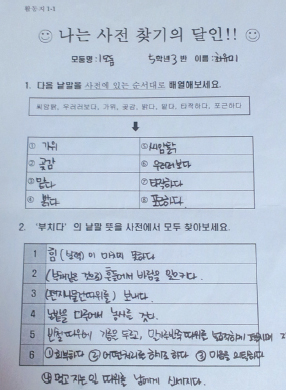 활동지 1-1
☺ 나는 사전 찾기의 달인!! ☺
모둠명 : 1모둠 5학년 3반 이름 : 차유미
1. 다음 낱말을 사전에 있는 순서대로 배열해보세요.
씨암탉, 우러러보다, 가위, 곶감, 밝다, 맡다, 타적하다, 포근하다
① 가위 ⑤ 씨암탉
② 곶감 ⑥ 우러러보다
③ 맡다 ⑦ 타작하다
④ 밝다 ⑧ 포근하다
2. '부치다'의 낱말 뜻을 사전에서 모두 찾아보세요.
1 힘(능력)이 미치지 못하다
2 흔들어서 바람을 일으키다.
3 (편지나 물건 따위를) 보내다.
4 논밭을 다루어 농사를 짓다.
5 번철 따위에 기름을 두르고,
6 ① 회부하다 ② 어떤 거리로 하기로 하다 ③ 마음을 의탁하다
④ 먹고 자는 일 따위를 남에게 신세지다.